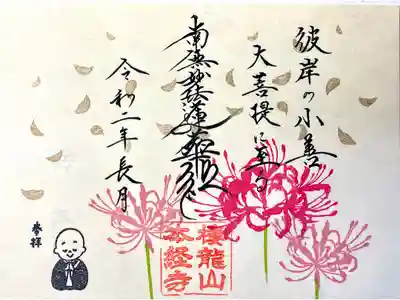 彼岸の小善
大菩提に至る
南無妙法蓮華経
令和二年長月
參拝
龍山
本経寺